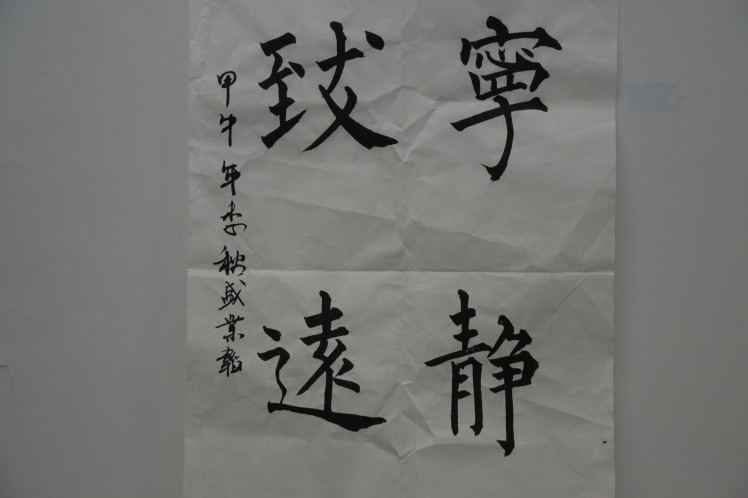 寧静
致遠
甲午年季秋盛業